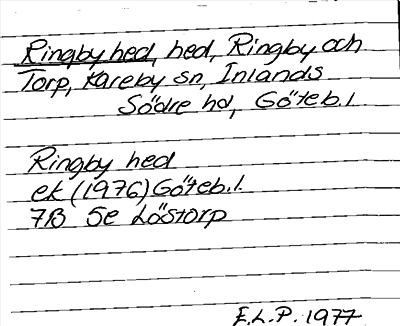 Ringby hed, hed, Ringby och
Torp, Kareby sn, Inlands
Södre hd, Göteb.l.
Ringby hed
ek (1976) Göteb.l.
7B 5e Löstorp
E.L.P. 1977